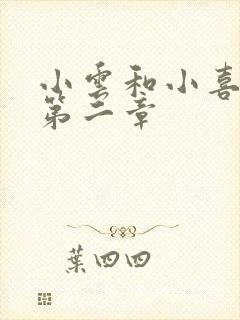 小雲和小喜
第二章
葉四四